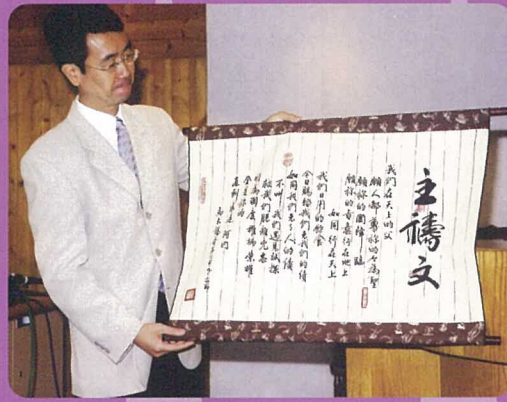 主禱文
我們在天上的父
願人都尊祢的名為聖
願祢的國降臨
願祢的旨意行在地上
如同行在天上
我們日用的飲食
今日賜給我們免我們的債
如同我們免了人的債
不叫我們遇見試探
救我們脫離兇惡
因為國度權柄榮耀
全是祢的
直到永遠阿們